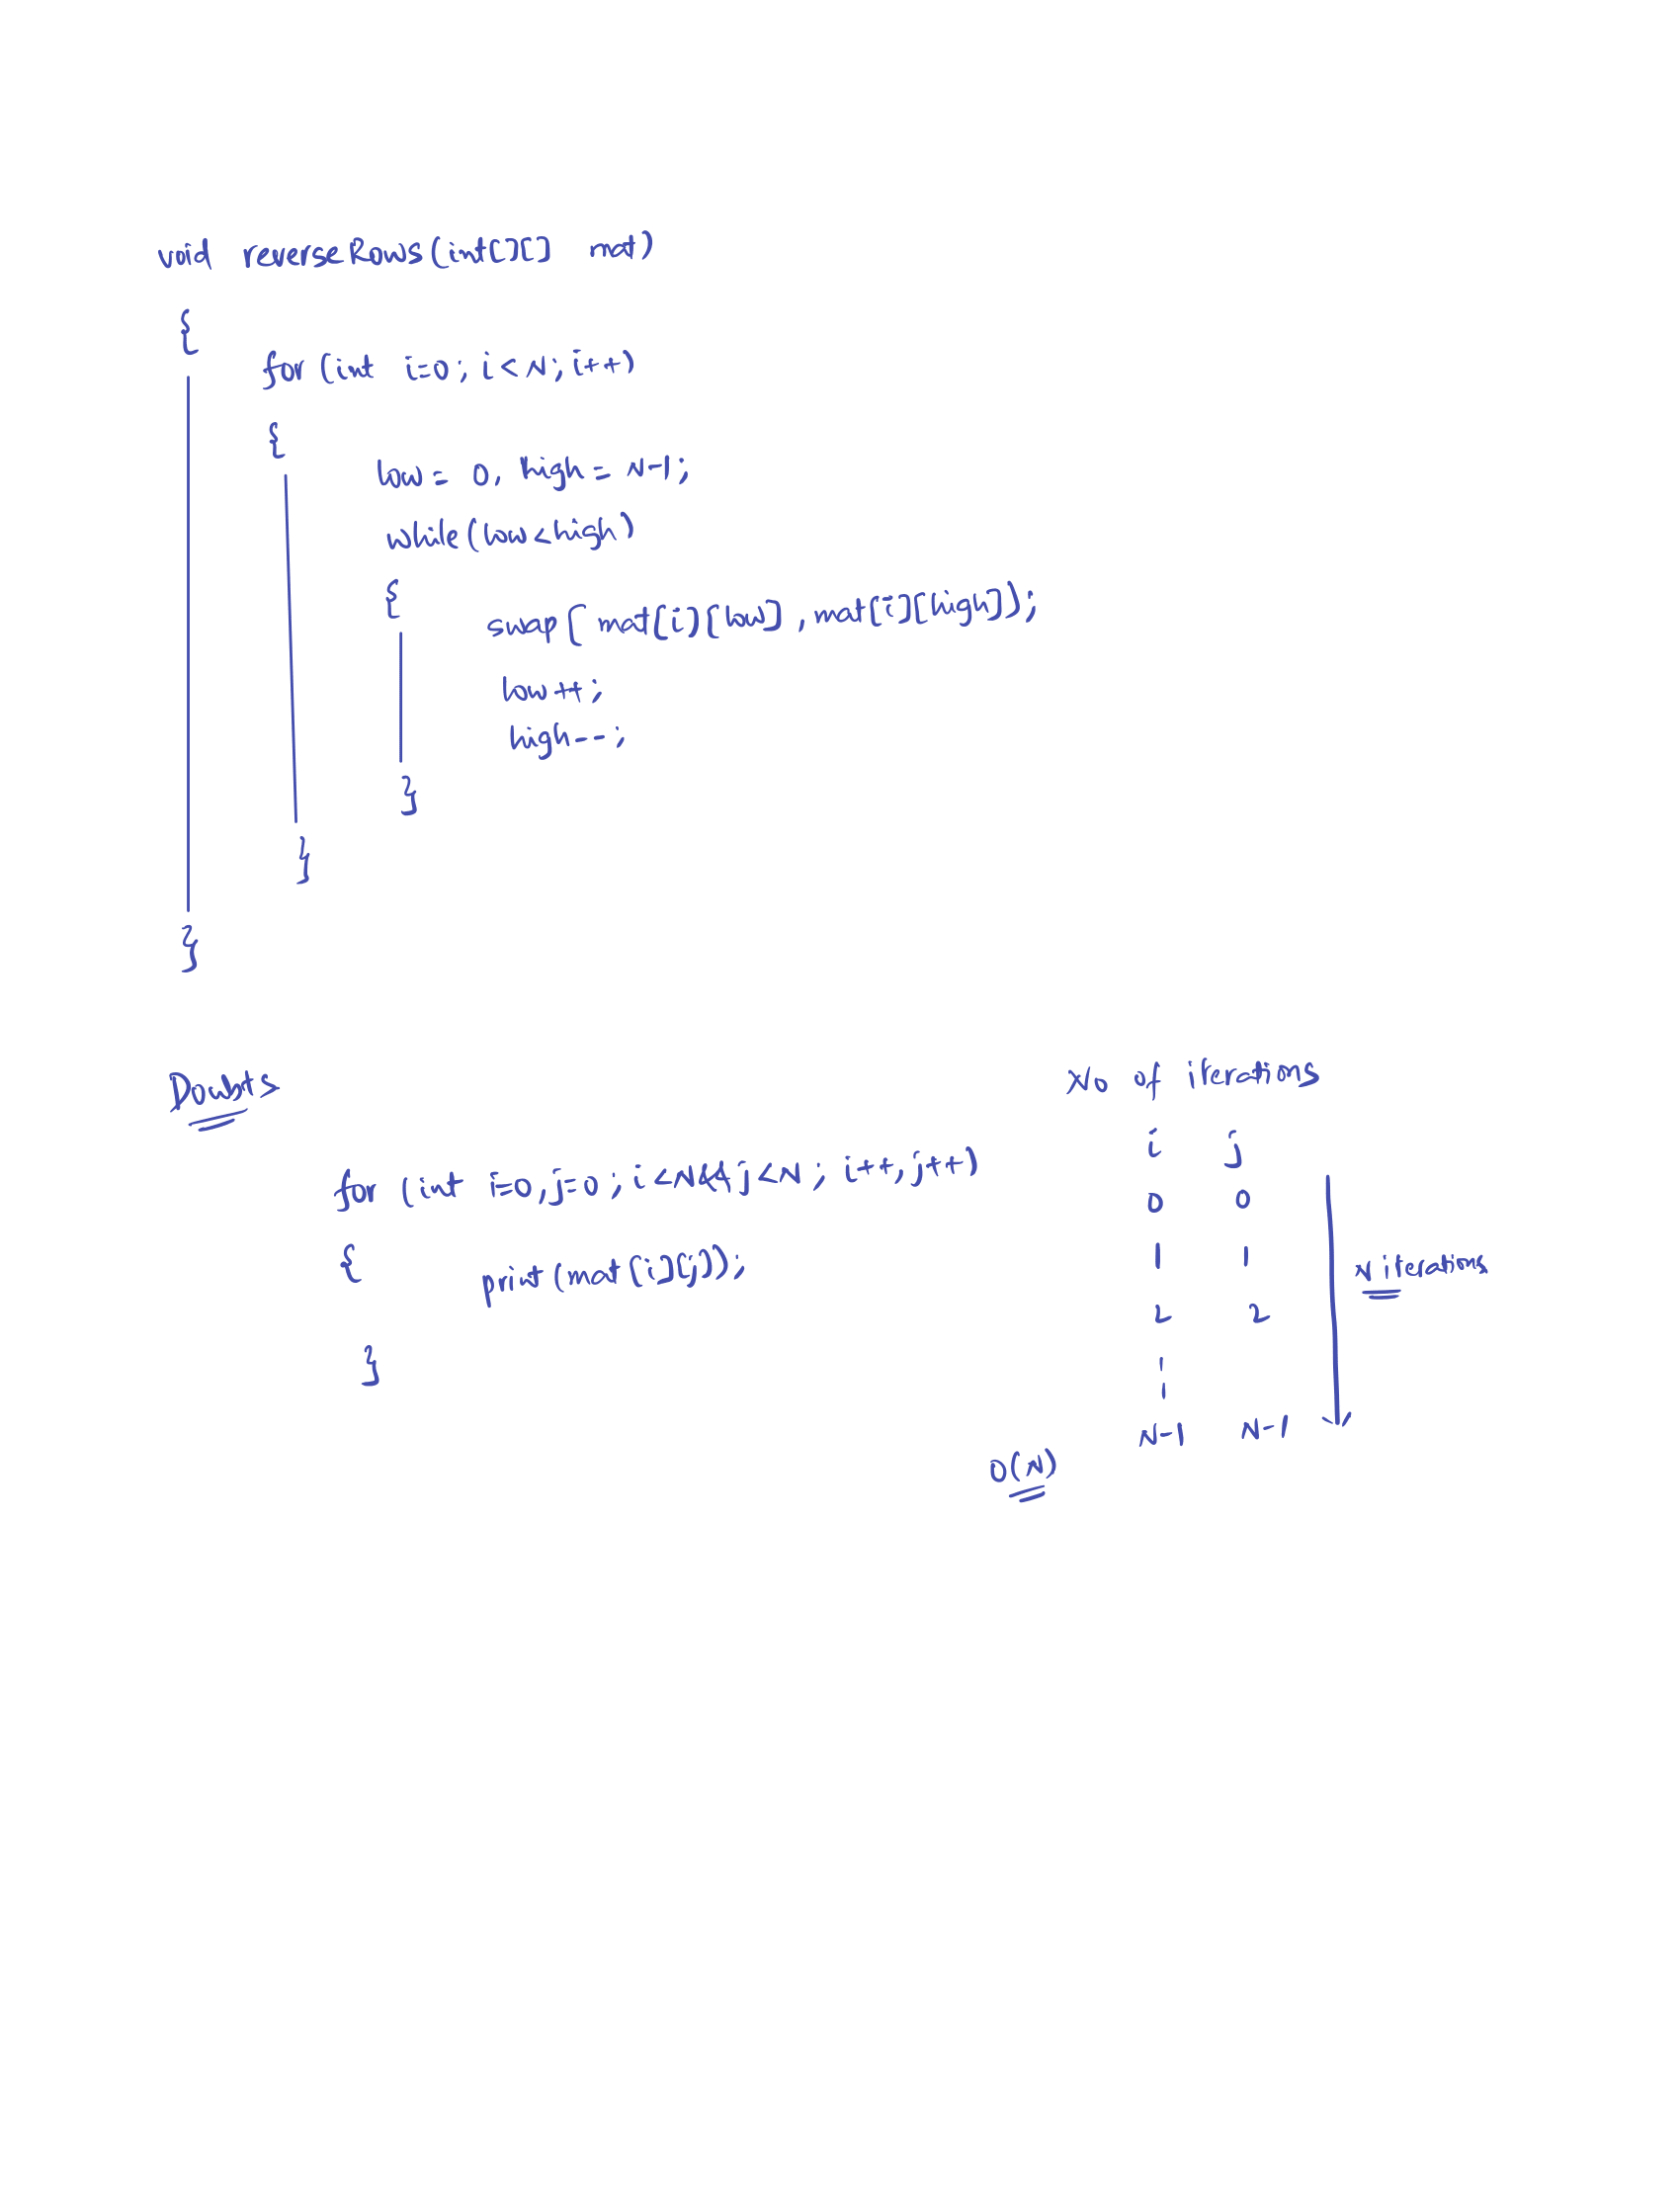 void reverseRows(int[][] mat)
{
for (int i=0; i<N; i++)
{
low = 0, high = N-1;
while(low<high)
{
swap[ mat[i][low], mat[i][high]);
low++;
high--;
}
}
}
Doubts
for (int i=0, j=0; i<N&&j<N; i++, j++)
{
print(mat[i][j]);
}
No of iterations
i j
0 0
1 1
2 2
N-1 N-1
N iterations
O(N)